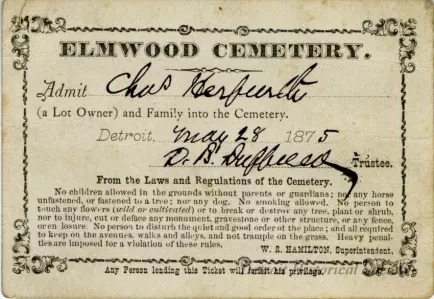 ELMWOOD CEMETERY.
Admit Chas Herfurth
(a Lot Owner) and Family into the Cemetery.
Detroit, May 28 1875
D. B. Duffield Trustee.
From the Laws and Regulations of the Cemetery.
No children allowed in the grounds without parents or guardians; nor any horse
unfastened, or fastened to a tree; nor any dog. No smoking allowed. No person to
touch any flowers (wild or cultivated) or to break or destroy any tree, plant or shrub,
nor to injure, cut or deface any monument, gravestone or other structure, or any fence,
or enclosure. No person to disturb the quiet and good order of the place; and all required
to keep on the avenues, walks and alleys, and not trample on the grass. Heavy penal-
ties are imposed for a violation of these rules.
W. R. HAMILTON, Superintendent.
Any Person lending this Ticket will forfeit his privilege.